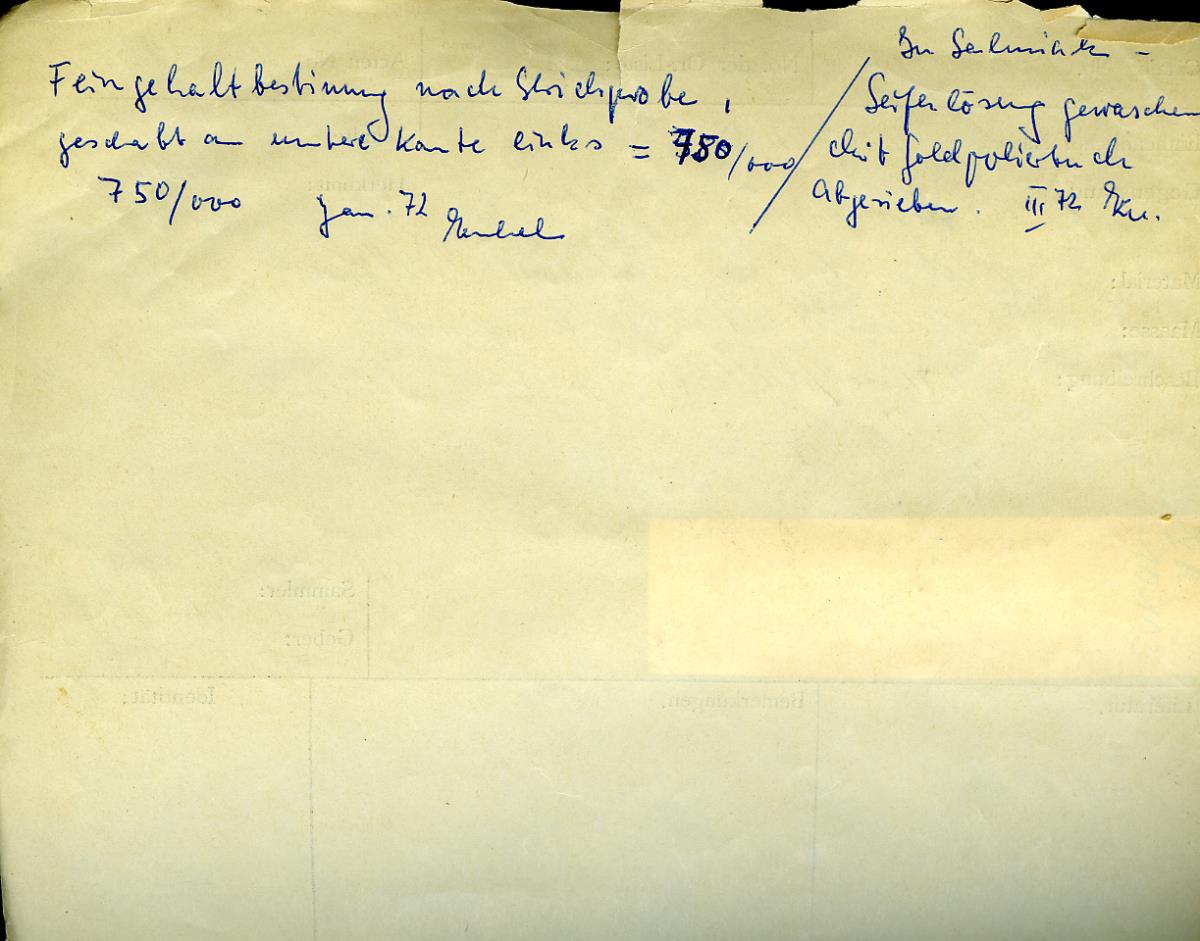 Feingehaltbestimmung nach Strichprobe,
geschabt an untere Kante links = 750/000
750/000 Jan. 72
In Salmiak -
Seifenlösung gewaschen
Mit Goldpoliertuch
Abgerieben. III 72 Ku.
Material:
Masse:
Beschreibung:
Sammler:
Geber:
Identität:
Bemerkungen.
Literatur.